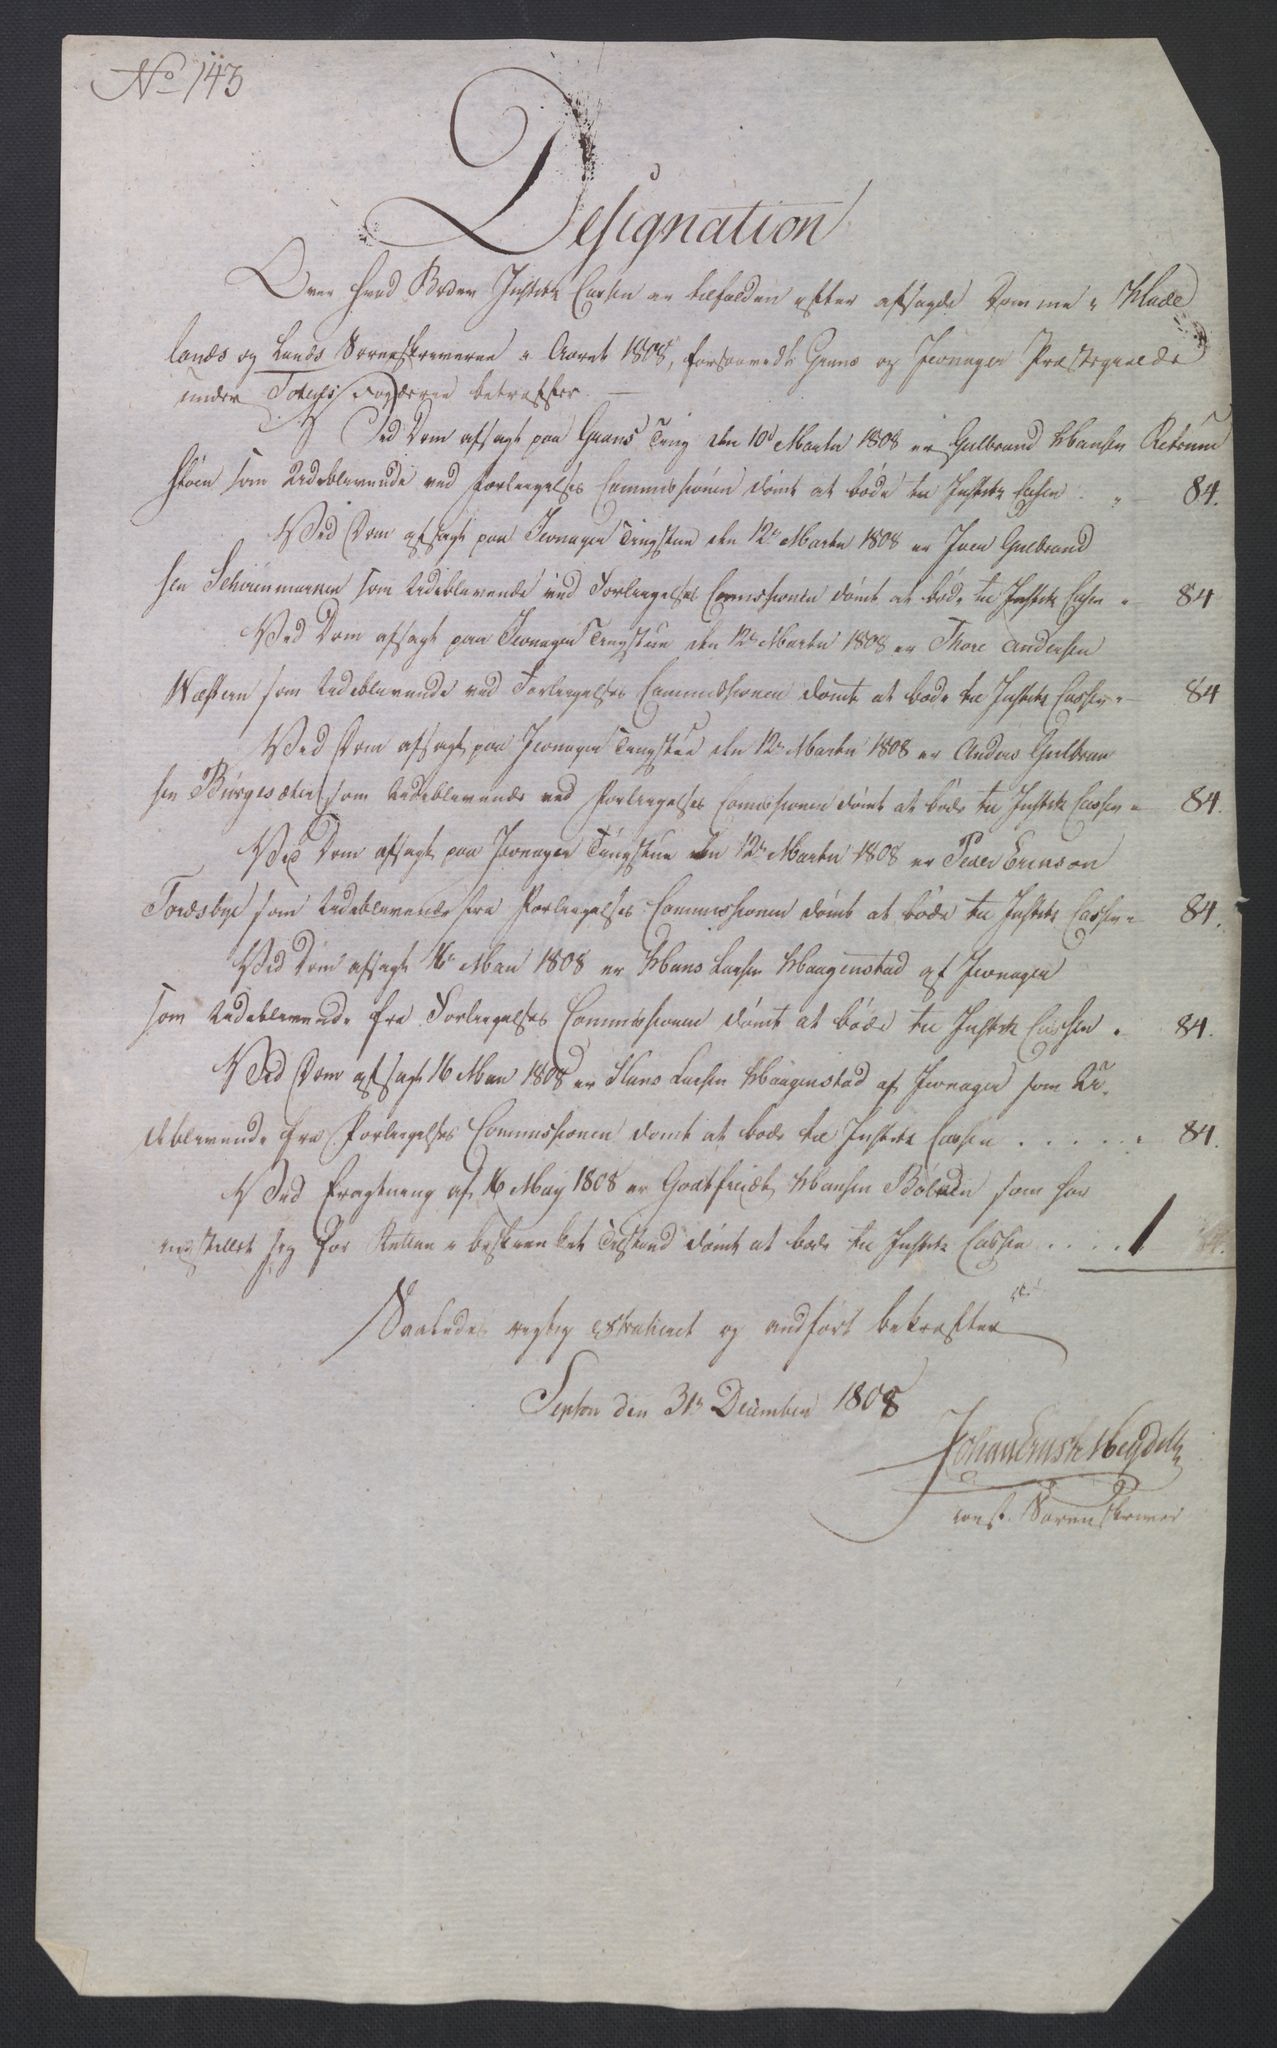 No 143
Designation
Over hvad Bøder Justits Cassen er tilfalden efter afsagde Domme i Hade
lands og Lands Sorenskriverie i Aaret 1808, forsaavidt Grans og Jevnager Præstegielde
under Totens Fogderie betreffer. —
Ved Dom afsagt paa Grans Ting den 10de Martii 1808 er Gulbrand Hansen
støen som Udeblevende ved Forliigelses Commissionen dømt at bøde til Justits Cassen . " 84.
Ved Dom afsagt paa Jevnager Tingstue den 12te Martii 1808 er Iver Gulbrand
sen som Udeblevende ved Forliigelses Comissionen dømt at bøde til Justits Cassen " 84
Ved Dom afsagt paa Jevnager Tingstue den 12te Martii 1808 er Thore Andersen
Næstern som Udeblevende ved Forliigelses Commissionen dømt at bøde til Justits Cassen " 84
Ved Dom afsagt paa Jevnager Tingstue den 12te Martii 1808 er Anders Gulbran
sen Børgesæter som Udeblevende ved Forliigelses Comissionen dømt at bøde til Justits Cassen " 84.
Ved Dom afsagt paa Jevnager Tingstue den 12te Martii 1808 er Peder Ericson
Tordsbye som Udeblevende fra Forliigelses Commissionen dømt at bøde til Justits Cassen " 84.
Ved Dom afsagt 16de Maii 1808 er Hans Larsen Haagenstad af Jevnager
som Udeblevende fra Forliigelses Commissionen dømt at bøde til Justits Cassen " 84.
Ved Dom afsagt 16 Maii 1808 er Hans Larsen Haagenstad af Jevnager som U
deblevende fra Forliigelses Commissionen dømt at bøde til Justits Cassen . . . . . " 84.
Ved Eragtning af 16 May 1808 er Goatfriedt Hansen som har
indstillet sig for Retten i beskienket Tilstand dømt at bøde til Justits Cassen . . . . 1
Saaledes rigtig extraheret og andført bekræfter
den 31te December 1808
Johan Ernst Heydell
const. Sorenskriver